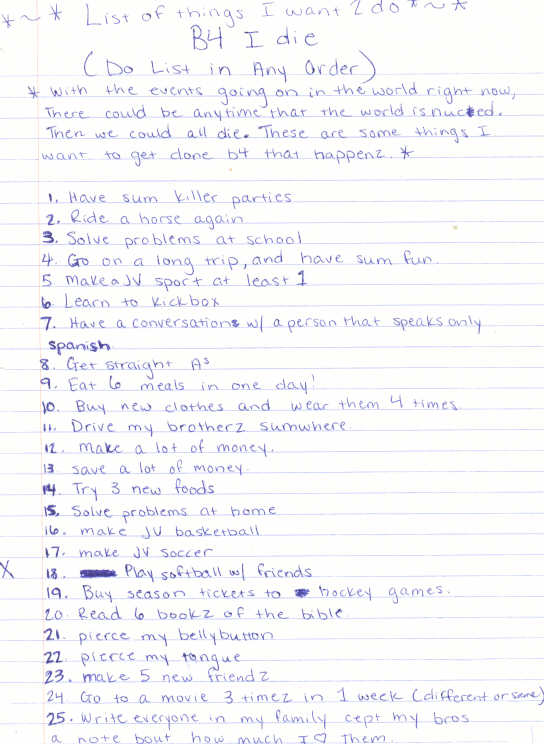 *~* List of things I want 2 do *~*
B4 I die
(Do List in Any Order)
* With the events going on in the world right now,
There could be anytime that the world is nucked.
Then we could all die. These are some things I
want to get done b4 that happenz. *
1. Have sum killer parties
2. Ride a horse again
3. Solve problems at school
4. Go on a long trip, and have sum fun.
5 Make a JV sport at least 1
6 Learn to Kickbox
7. Have a conversations w/ a person that speaks only
spanish
8. Get straight A's
9. Eat 6 meals in one day!
10. Buy new clothes and wear them 4 times
11. Drive my brotherz sumwhere
12. make a lot of money.
13 save a lot of money
14. Try 3 new foods
15. Solve problems at home
16. make JV basketball
17. make JV soccer
X 18. Play softball w/ friends
19. Buy season tickets to hockey games.
20. Read 6 bookz of the bible
21. pierce my bellybutton
22. pierce my tongue
23. make 5 new friendz
24 Go to a movie 3 timez in 1 week (different or same)
25. Write everyone in my family cept my bros
a note bout how much I ♡ Them.